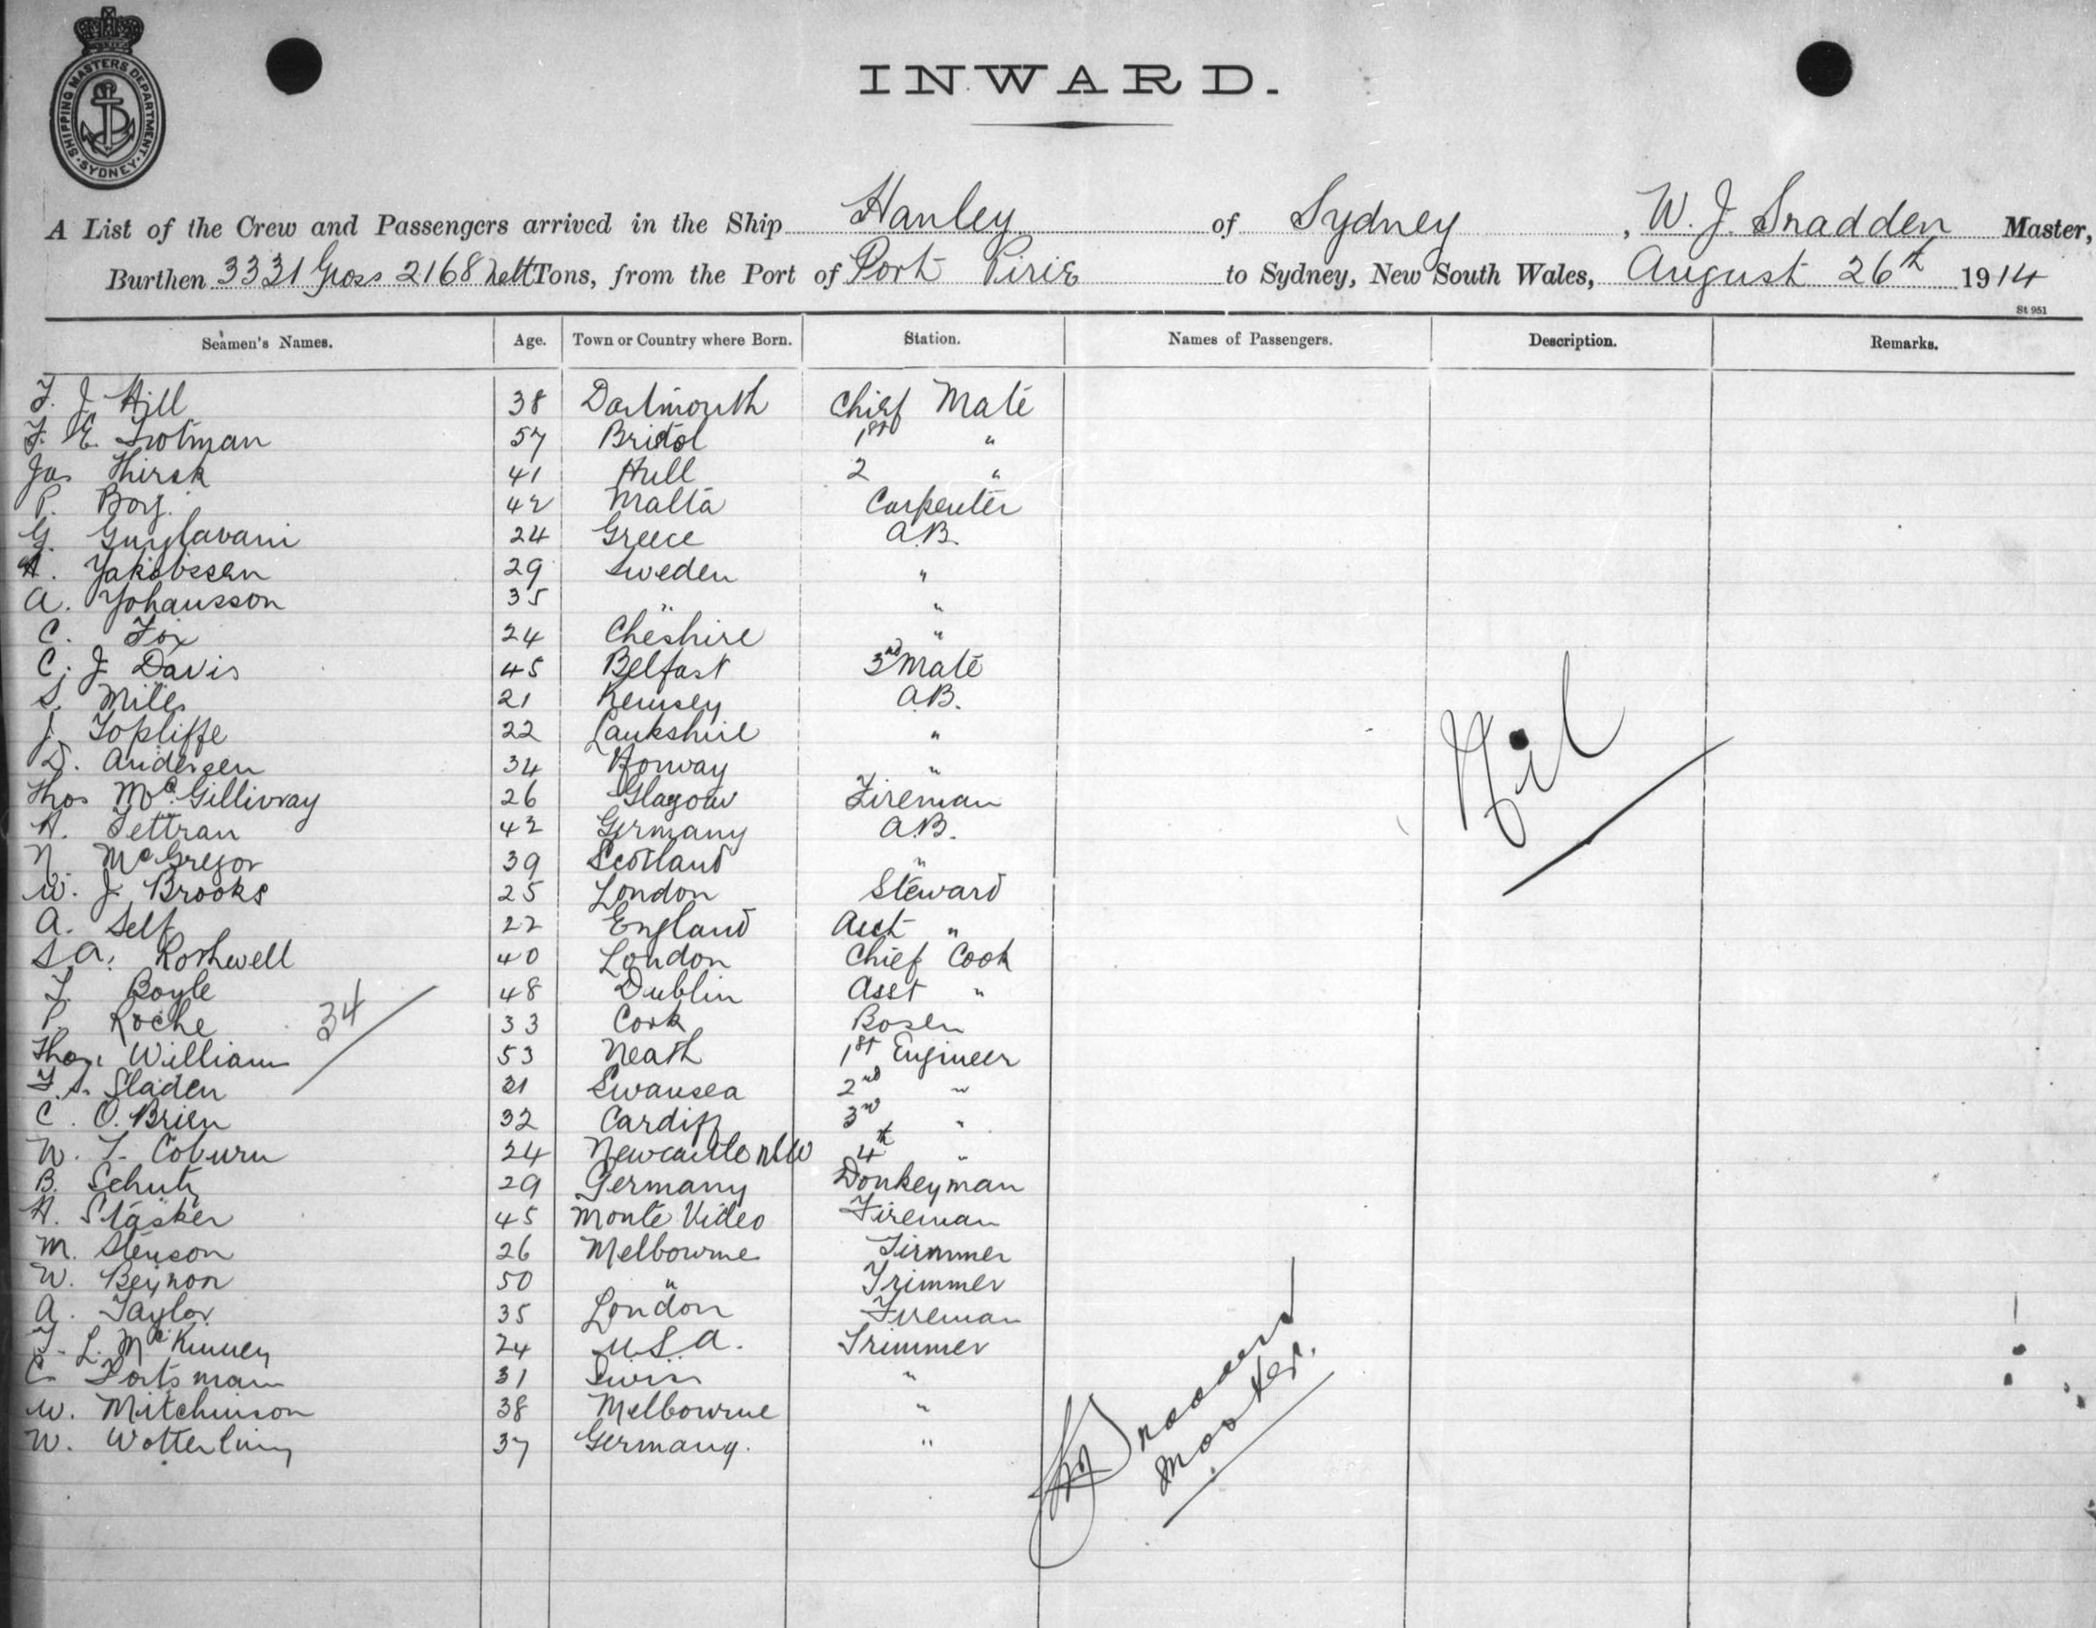 SHIPPING MASTERS DEPARTMENT
SYDNEY
INWARD.
A List of the Crew and Passengers arrived in the Ship Hanley of Sydney, W. J. Snadden Master,
Burthen 3331 Gross 2168 nett Tons, from the Port of Port Pirie to Sydney, New South Wales, August 26th 1914
St 951
Seamen's Names. Age. Town or Country where Born. Station. Names of Passengers. Description. Remarks.
F. J. Hill 38 Dartmouth Chief Mate
F. E. Trotman 57 Bristol 1st "
Jas Thirsk 41 Hull 2 "
P. Borg. 42 Malta Carpenter
G. 24 Greece A.B.
A. Yakobssen 29 Sweden "
A. Yohansson 35 " "
C. Fox 24 Cheshire "
C. J. Davis 45 Belfast 3rd Mate
S. Miles 21 Kemsey A.B.
J. Topliffe 22 Lankshire "
D. Andersen 34 Norway "
Thos McGillivray 26 Glagow Fireman
H. Tettran 42 Germany A.B.
N. McGregor 39 Scotland "
W. J. Brooks 25 London Steward
A. Self 22 England Asst "
S A. Rothwell 40 London Chief Cook
T. Boyle 48 Dublin Asst "
P. Roche 33 Cork Bosen
34
Thos. William 53 Neath 1st Engineer
Sladen 21 Swansea 2nd "
C. O.Brien 32 Cardiff 3rd "
W. T. Coburn 24 Newcastle NSW 4th "
B. Schutz 29 Germany Donkeyman
H. Stasker 45 Monte Video Fireman
M. Stenson 26 Melbourne
W. Beynon 50 " Trimmer
A. Taylor 35 London Fireman
T. L. McKinney 24 U.S.A. Trimmer
C. Portsmann 31 Swiss "
W. Mitchinson 38 Melbourne "
W. Wotterling 37 Germany. "
Nil
W J Snadden
Master.